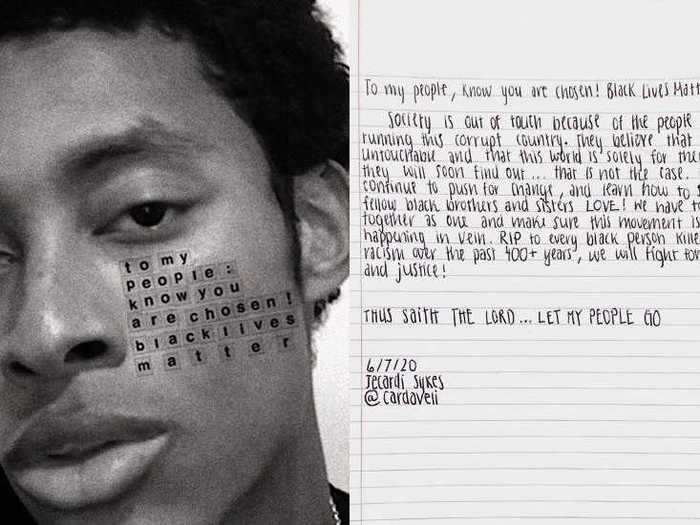 to my
people:
know you
are chosen!
black lives
matter
To my people, know you are chosen! Black Lives Matt
Society is out of touch because of the people
running this corrupt country. They believe that
untouchable and that this world is solely for the
they will soon find out... that is not the case.
continue to push for change, and learn how to s
fellow black brothers and sisters LOVE! We have t
together as one and make sure this movement is
happening in vein. RIP to every black person kille
racism over the past 400+ years, we will fight for
and justice!
THUS SAITH THE LORD... LET MY PEOPLE GO
6/7/20
Jecardi Sykes
@cardaveli